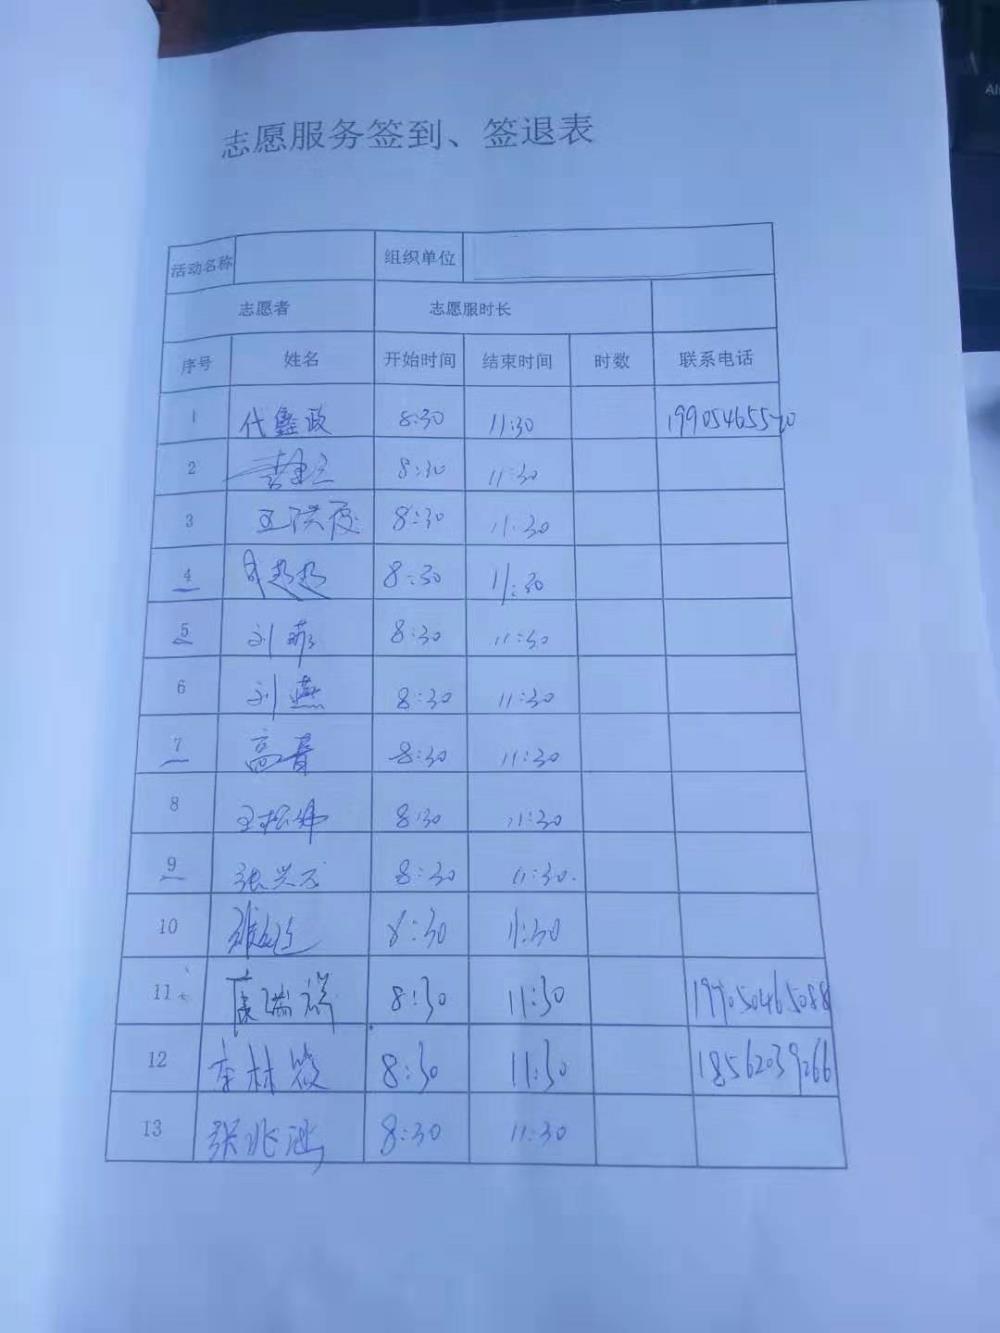 志愿服务签到、签退表
活动名称 组织单位
志愿者 志愿服时长
序号 姓名 开始时间 结束时间 时数 联系电话
1 代鑫政 8:30 11:30
2 8:30 11:30
3 8:30 11:30
4 8:30 11:30
5 刘 8:30 11:30
6 刘燕 8:30 11:30
7 高青 8:30 11:30
8 王松 8:30 11:30
9 张兴 8:30 11:30
10 8:30 11:30
11 康瑞祥 8:30 11:30
12 李林 8:30 11:30 18562039266
13 张兆 8:30 11:30